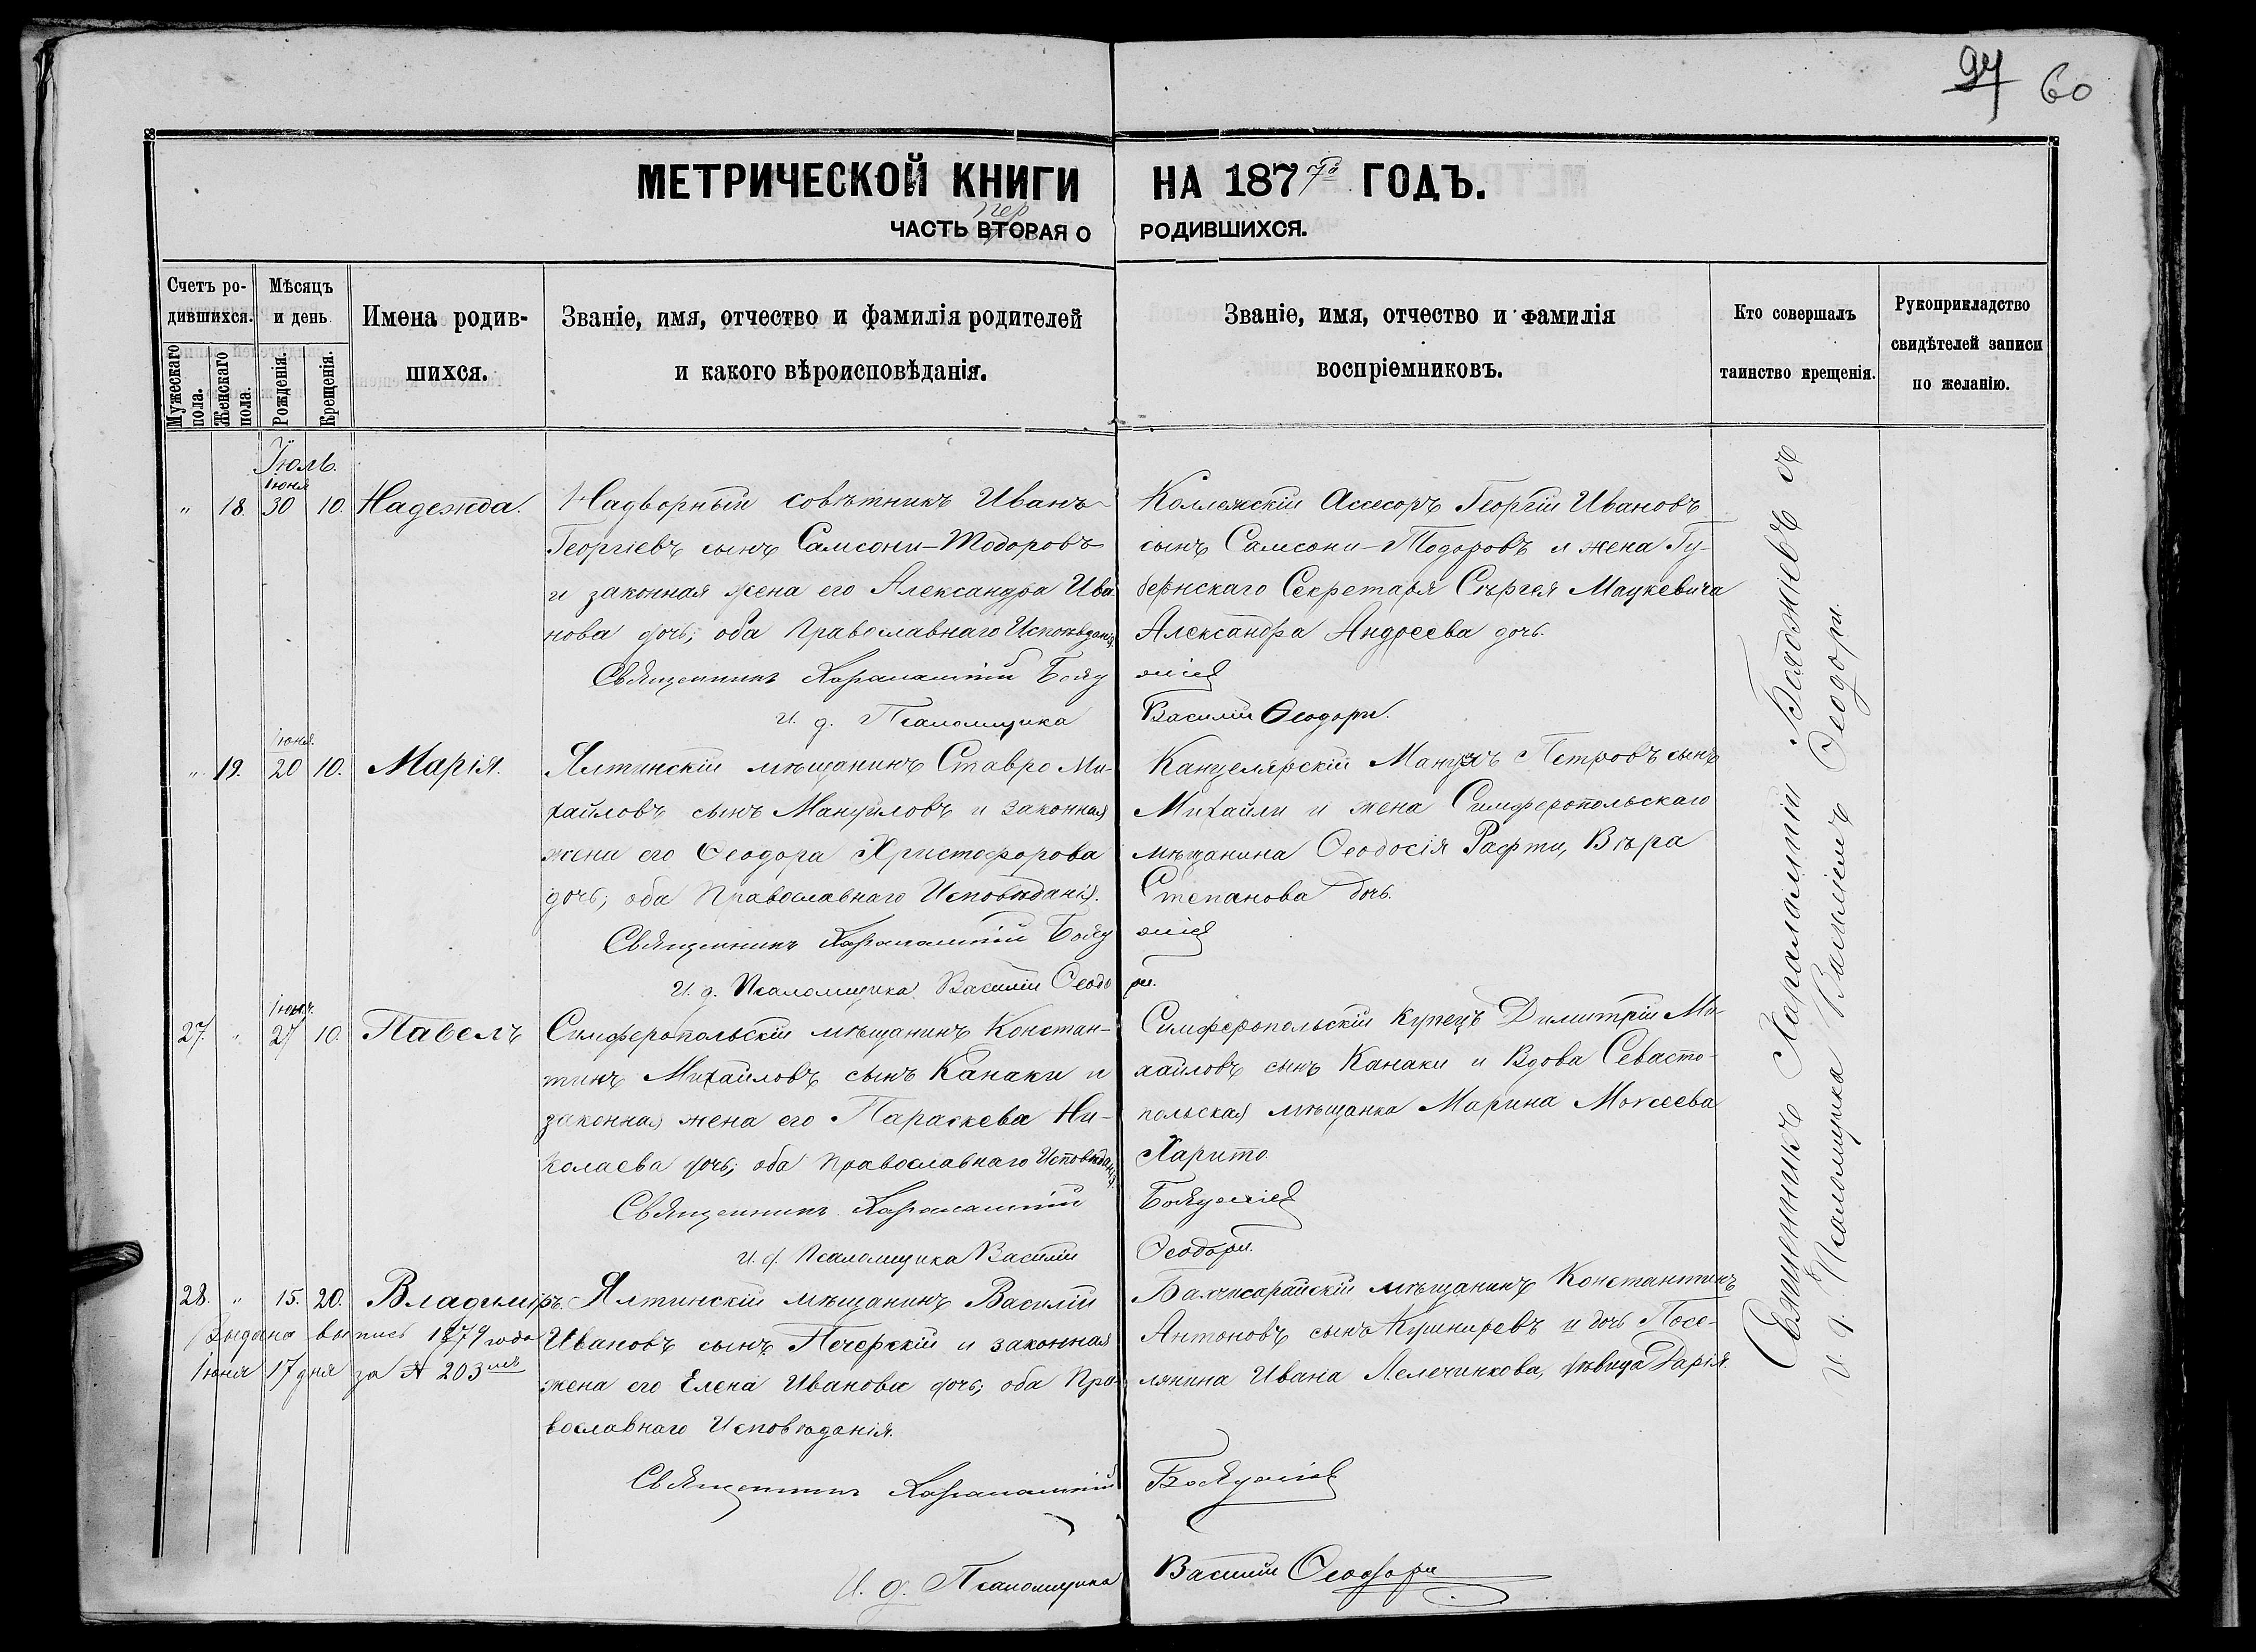 97 60
МЕТРИЧЕСКОЙ КНИГИ НА 1877й ГОДЪ.
пер
ЧАСТЬ ВТОРАЯ О РОДИВШИХСЯ.
Счетъ родившихся.
Мужескаго пола.
Женскаго пола.
Мѣсяцъ и день
Рожденія.
Крещенія.
Имена родив-
шихся.
Званіе, имя, отчество и фамилія родителей
и какого вѣроисповѣданія.
Званіе, имя, отчество и фамилія
воспріемниковъ.
Кто совершалъ
таинство крещенія.
Рукоприкладство
свидѣтелей записи
по желанію.
Іюль.
Іюня
" 18. 30 10. Надежда.
Надворный совѣтникъ Иванъ
Георгіевъ сынъ Самсони-Тодоровъ
и законная жена его Александра Ива
нова дочь; оба Православнаго Исповѣданія.
Священникъ Харалампій Бояд
и. д. Псаломщика
Коллежскій Ассесоръ Георгій Ивановъ
сынъ Самсони-Тодоровъ и жена Гу-
бернскаго Секретаря Сергѣя Мацкевича
Александра Андреева дочь.
жіев
Василій Ѳеодори.
Іюня.
" 19. 20 10. Марія.
Ялтинскій мѣщанинъ Ставро Ми-
хайловъ сынъ Мануиловъ и законная
жена его Ѳеодора Христофорова
дочь; оба Православнаго Исповѣданія.
Священникъ Харалампій Бояд
И. д. Псаломщика Василій Ѳеодо
Канцелярскій Мануилъ Петровъ сынъ
Михайли и жена Симферопольскаго
мѣщанина Ѳеодосія Рафти, Вѣра
Степанова дочь.
жіев
ри.
Іюня.
27. " 27 10. Павелъ
Симферопольскій мѣщанинъ Констан-
тинъ Михайловъ сынъ Канаки и
законная жена его Параскева Ни-
колаева дочь; оба Православнаго Исповѣданія.
Священникъ Харалампій
и. д. Псаломщика Василій
Симферопольскій купецъ Димитрій Ми-
хайловъ сынъ Канаки и Вдова Севасто-
польская мѣщанка Марина Моисеева
Харито.
Бояджіев
Ѳеодори.
28. " 15. 20. Владиміръ.
Выдана выпись 1879 года
Іюня 17 дня за № 203мъ
Ялтинскій мѣщанинъ Василій
Ивановъ сынъ Печерскій и законная
жена его Елена Иванова дочь; оба Пра-
вославнаго Исповѣданія.
Священникъ Харалампій
И. д. Псаломщика
Бахчисарайскій мѣщанинъ Константинъ
Антоновъ сынъ Кушниревъ и дочь Посе-
лянина Ивана Лелечинкова, дѣвица Дарія.
Бояджіев
Василій Ѳеодори
Священникъ Харалампій Бояджіевъ съ
и. д. Псаломщика Василіемъ Ѳеодори.